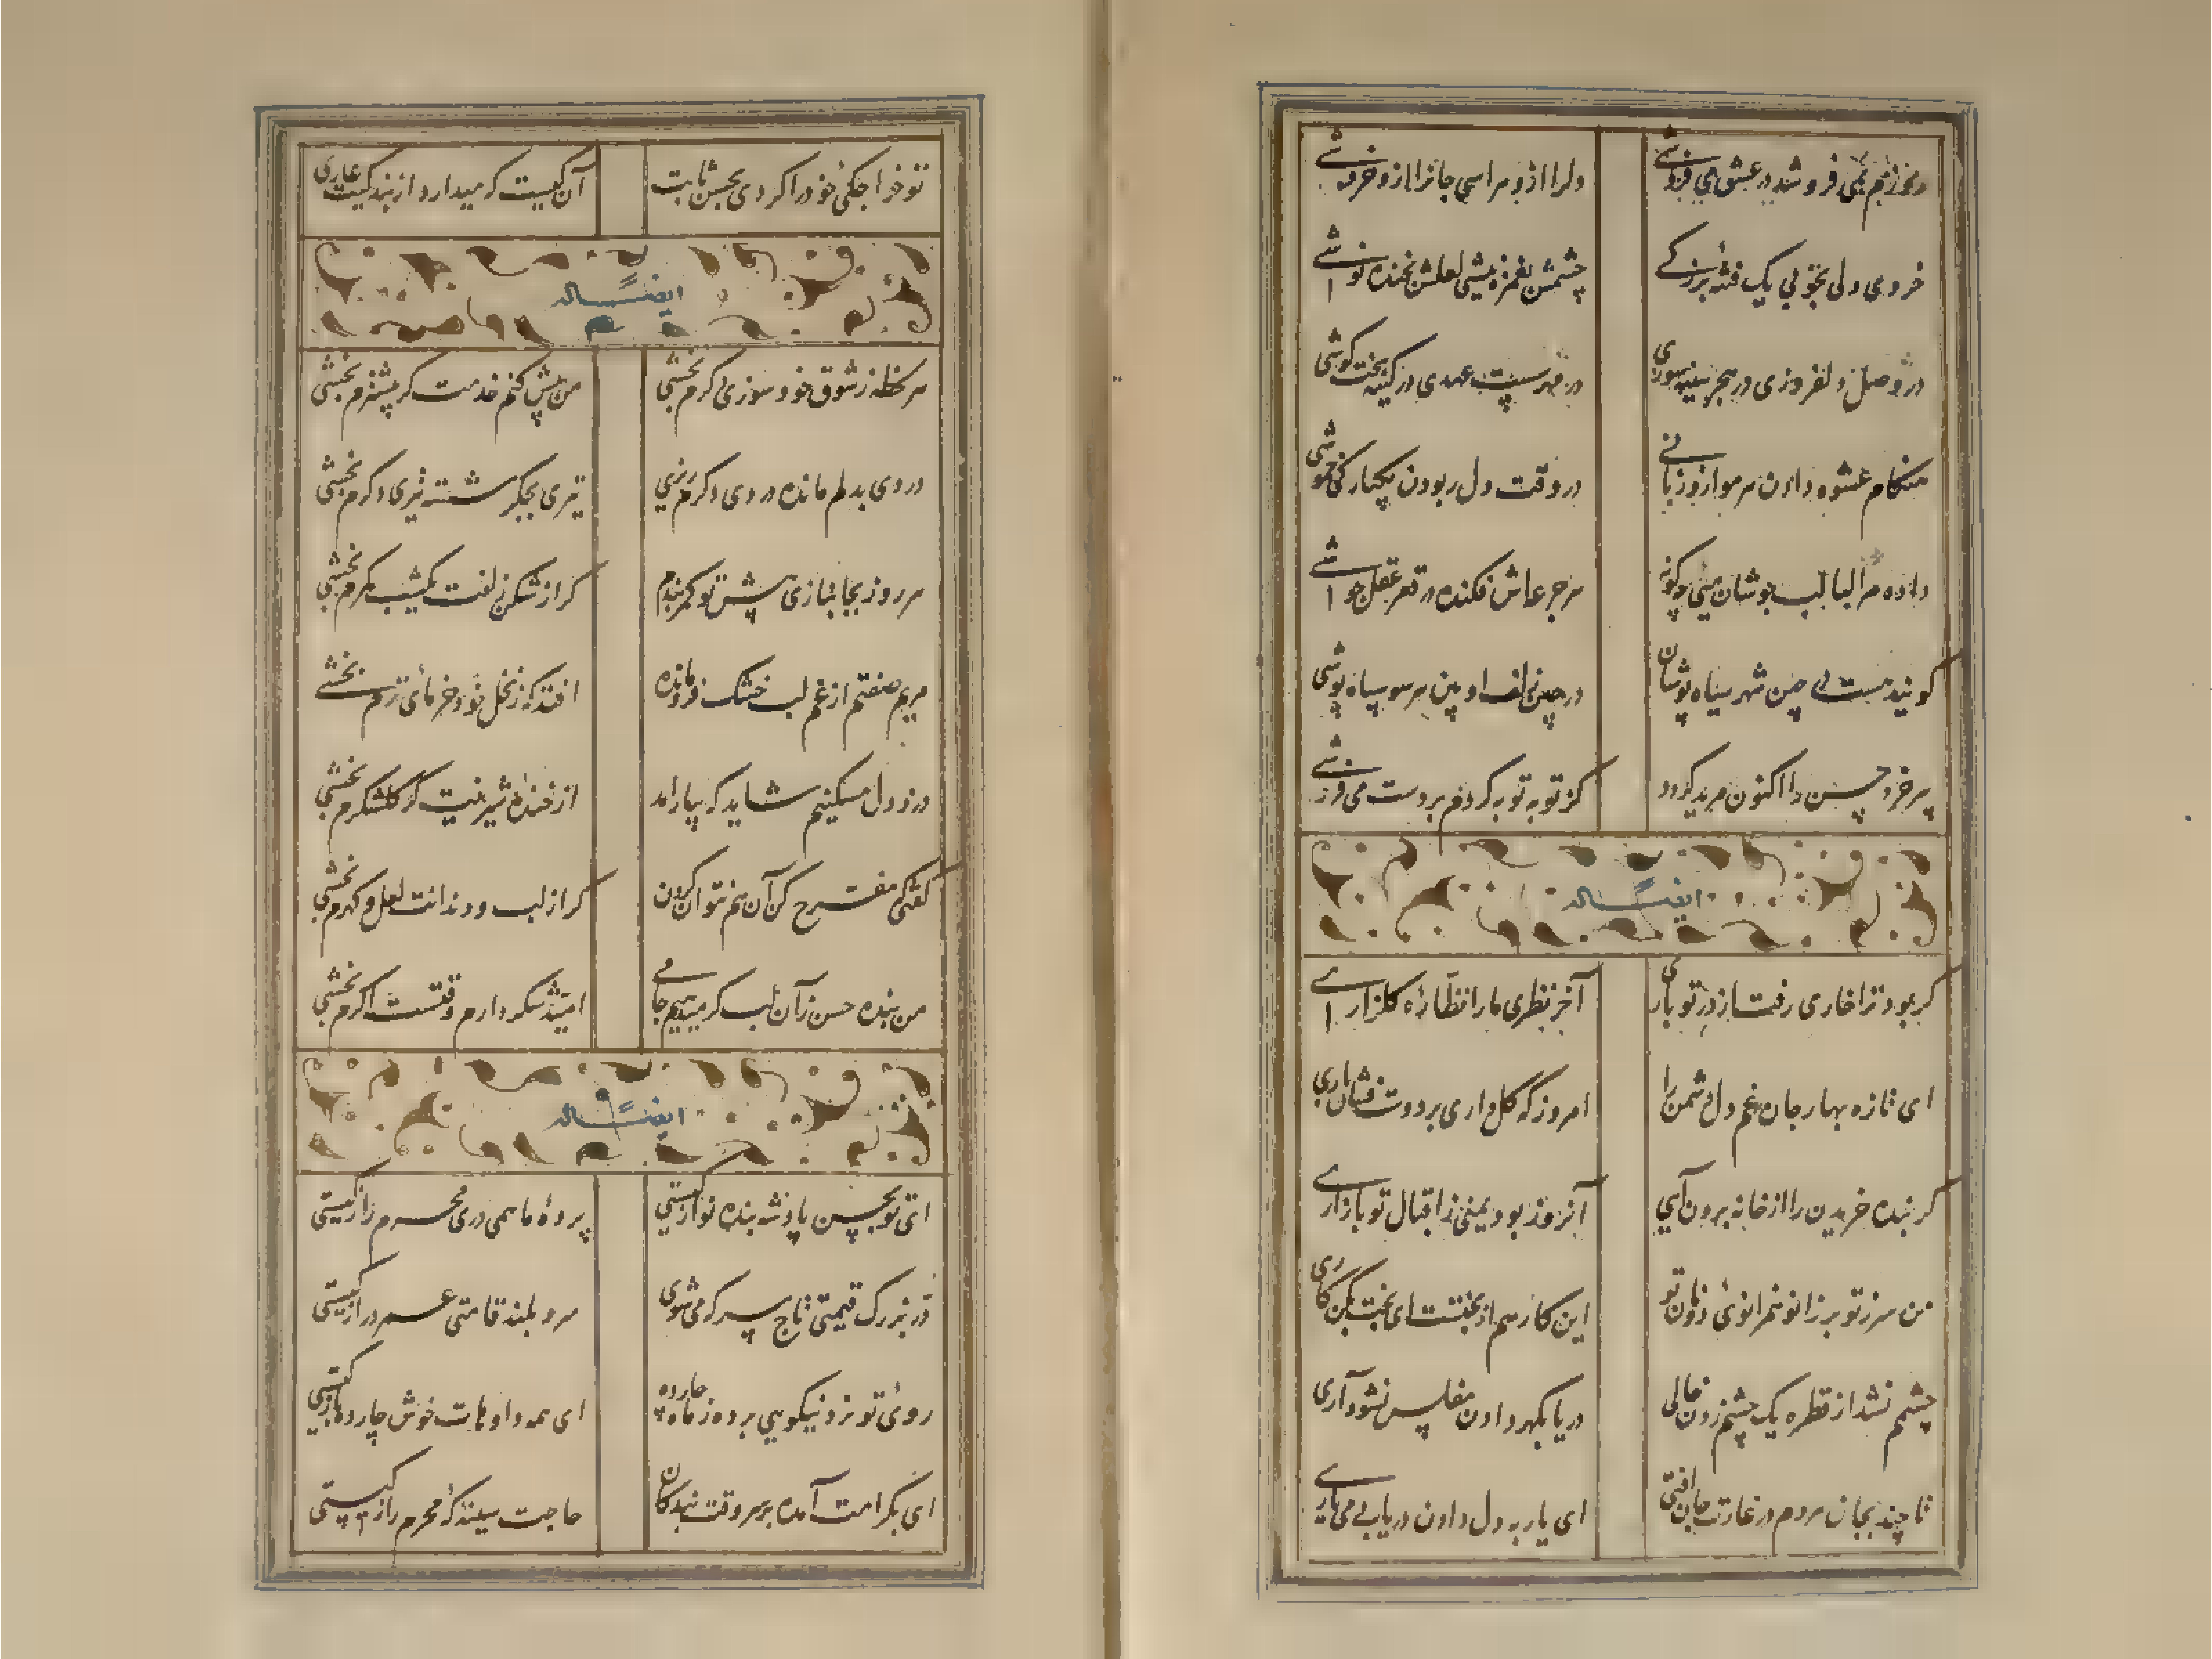 دلرا ازو هراسی جانرا ازو خروشی
خردی ولی بخوبی یک فتنه بزرگی
چشمش بغمزه نیشی لعلش بخنده نوشی
در وصل دلفروزی در هجر سینه سوزی
در مهر سست عهدی در کینه سخت کوشی
هنگام عشوه دادن هر مو ازو زبانی
در وقت دل ربودن یکبارگی خموشی
داده مرا لبالب جوشان میی چو گونه
هر جرعه اش فکنده در قعر عقل جوشی
گویند هست در چین شهر سیاه پوشان
در چین زلف او بین هر سو سیاه پوشی
پیر خرد حسن را اکنون مرید گردد
کز توبه توبه کردم بر دست می فروشی
ایضاً له
گر بود ترا خاری رفت از در تو باری
آخر نظری ما را نظاره گلزاری
ای تازه بهار جان غم دل دشمن را
امروز که گل داری بر دوست فشان باری
گر بنده خریدن را از خانه برون آیی
آنروز بود یعنی ز اقبال تو بازاری
من سر ز تو بر زانو هم زانوی دونان تو
این کار هم از بختست ای بخت نگن کاری
چشمم نشد از قطره یک چشم زدن خالی
دریا بگهر دادن مفلس نشود آری
تا چند بجان مردم در غارت جان افتی
ای یار به دل دادن دریاب بی می یاری
تو خواجگئ خود را کردی بحسن ثابت
آن کیست که میدارد از بندگیت عاری
ایضاً له
هر لحظه ز شوق خود سوزی دگرم بخشی
من پیش کنم خدمت گر پیشترم بخشی
دردی بدلم مانده دردی دگرم ریزی
تیری بجگر شسته تیری دگرم بخشی
هر روز بجانبازی پیش تو کمر بندم
گر از شکن زلفت یکشب کمرم بخشی
مریم صفتم از غم لب خشک فرومانده
افتد که ز نخل خود خرمای ترم بخشی
درد دل مسکینم شاید که بیارامد
از خنده شیرینت گر گلشکرم بخشی
گفتی که مفرح کن آن هم نتوان کردن
گر از لب و دندانت لعل و گهرم بخشی
من بنده حسن زان لب گر میدهیم جامی
امید شکر دارم وقتست اگرم بخشی
ایضاً له
ای تو بحسن پادشه بنده نواز کیستی
پرده ما همی دری محرم راز کیستی
در بزرگ قیمتی تاج سر که می شوی
سرو بلند قامتی عمر دراز کیستی
روی تو نرد نیکویی برده ز ماه چارده
ای همه داوهات خوش چارده باز کیستی
ای بکرامت آمده بر سر وقت بندگان
حاجت سینه که محرم راز کیستی